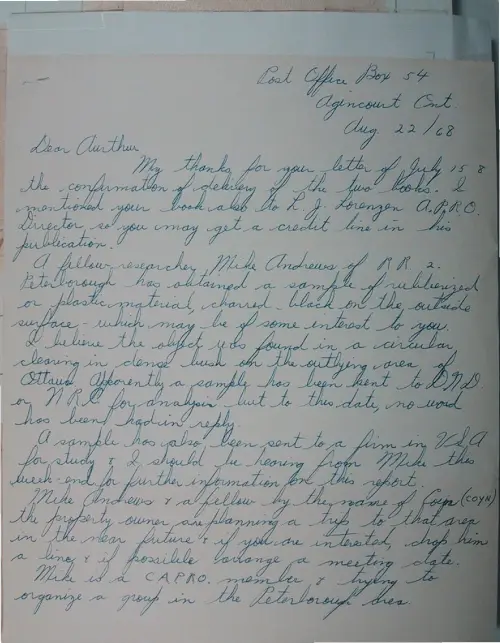 Post Office Box 54
Agincourt Ont
Aug 22/68
Dear Aurthur
My thanks for your letter of July 15 &
the confirmation of delivery of the two books. I
mentioned your book also to L. J. Lorenzen A.P.R.O.
Director, so you may get a credit line in his
publication.
A fellow researcher, Mike Andrews of R R 2.
Peterborough has obtained a sample of rubberized
or plastic material, charred black on the outside
surface - which may be of some interest to you.
I believe the object was found in a circular
clearing in dense bush on the outlying area of
Ottawa. Apparently a sample has been sent to D.N.D.
or N.R.C for analysis but to this date, no word
has been had in reply.
A sample has also been sent to a firm in U.S.A
for study & I should be hearing from Mike this
week-end for further information on this report.
Mike Andrews & a fellow by the name of (COYN)
the property owner, are planning a trip to that area
in the near future & if you are interested, drop him
a line & if possible arrange a meeting date.
Mike is a C.A.P.R.O. member & trying to
organize a group in the Peterborough area.